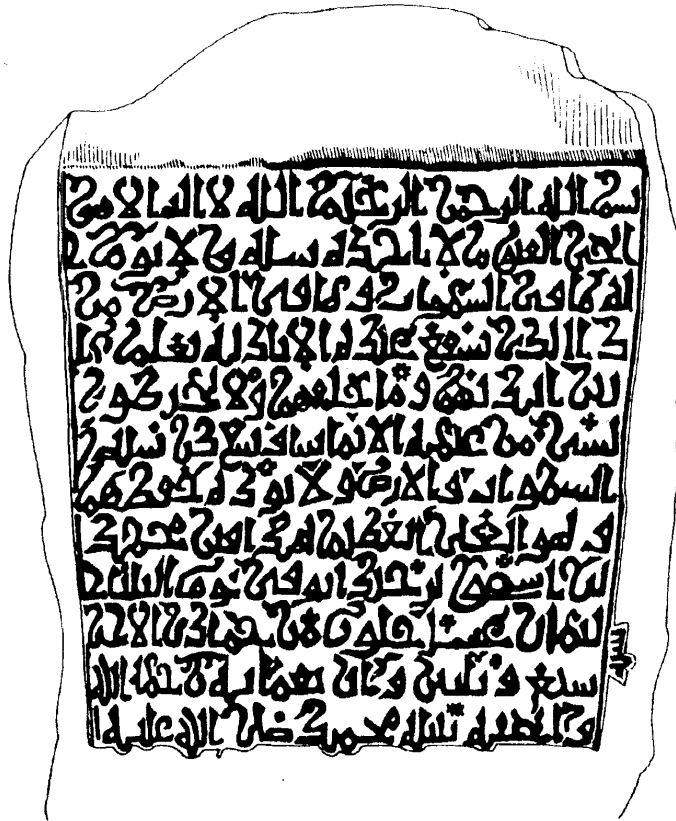 بسم الله الرحمن الرحيم الله لا اله الا هو
الحي القيوم لا تاخذه سنة ولا نوم
له ما في السموات وما في الارض من
ذا الذي يشفع عنده الا باذنه يعلم ما
بين ايديهم وما خلفهم ولا يحيطون
بشي من علمه الا بما شا وسع كرسيه
السموات والارض ولا يوده حفظهما
وهو العلي العظيم هذا قبر محمد
بن اسحق بن توفي يوم الثلثا
لثمان عشر خلون من جمادى
سبع و ثلثين و مائة رحمه الله
والحقه بنبيه محمد صلى الله عليه